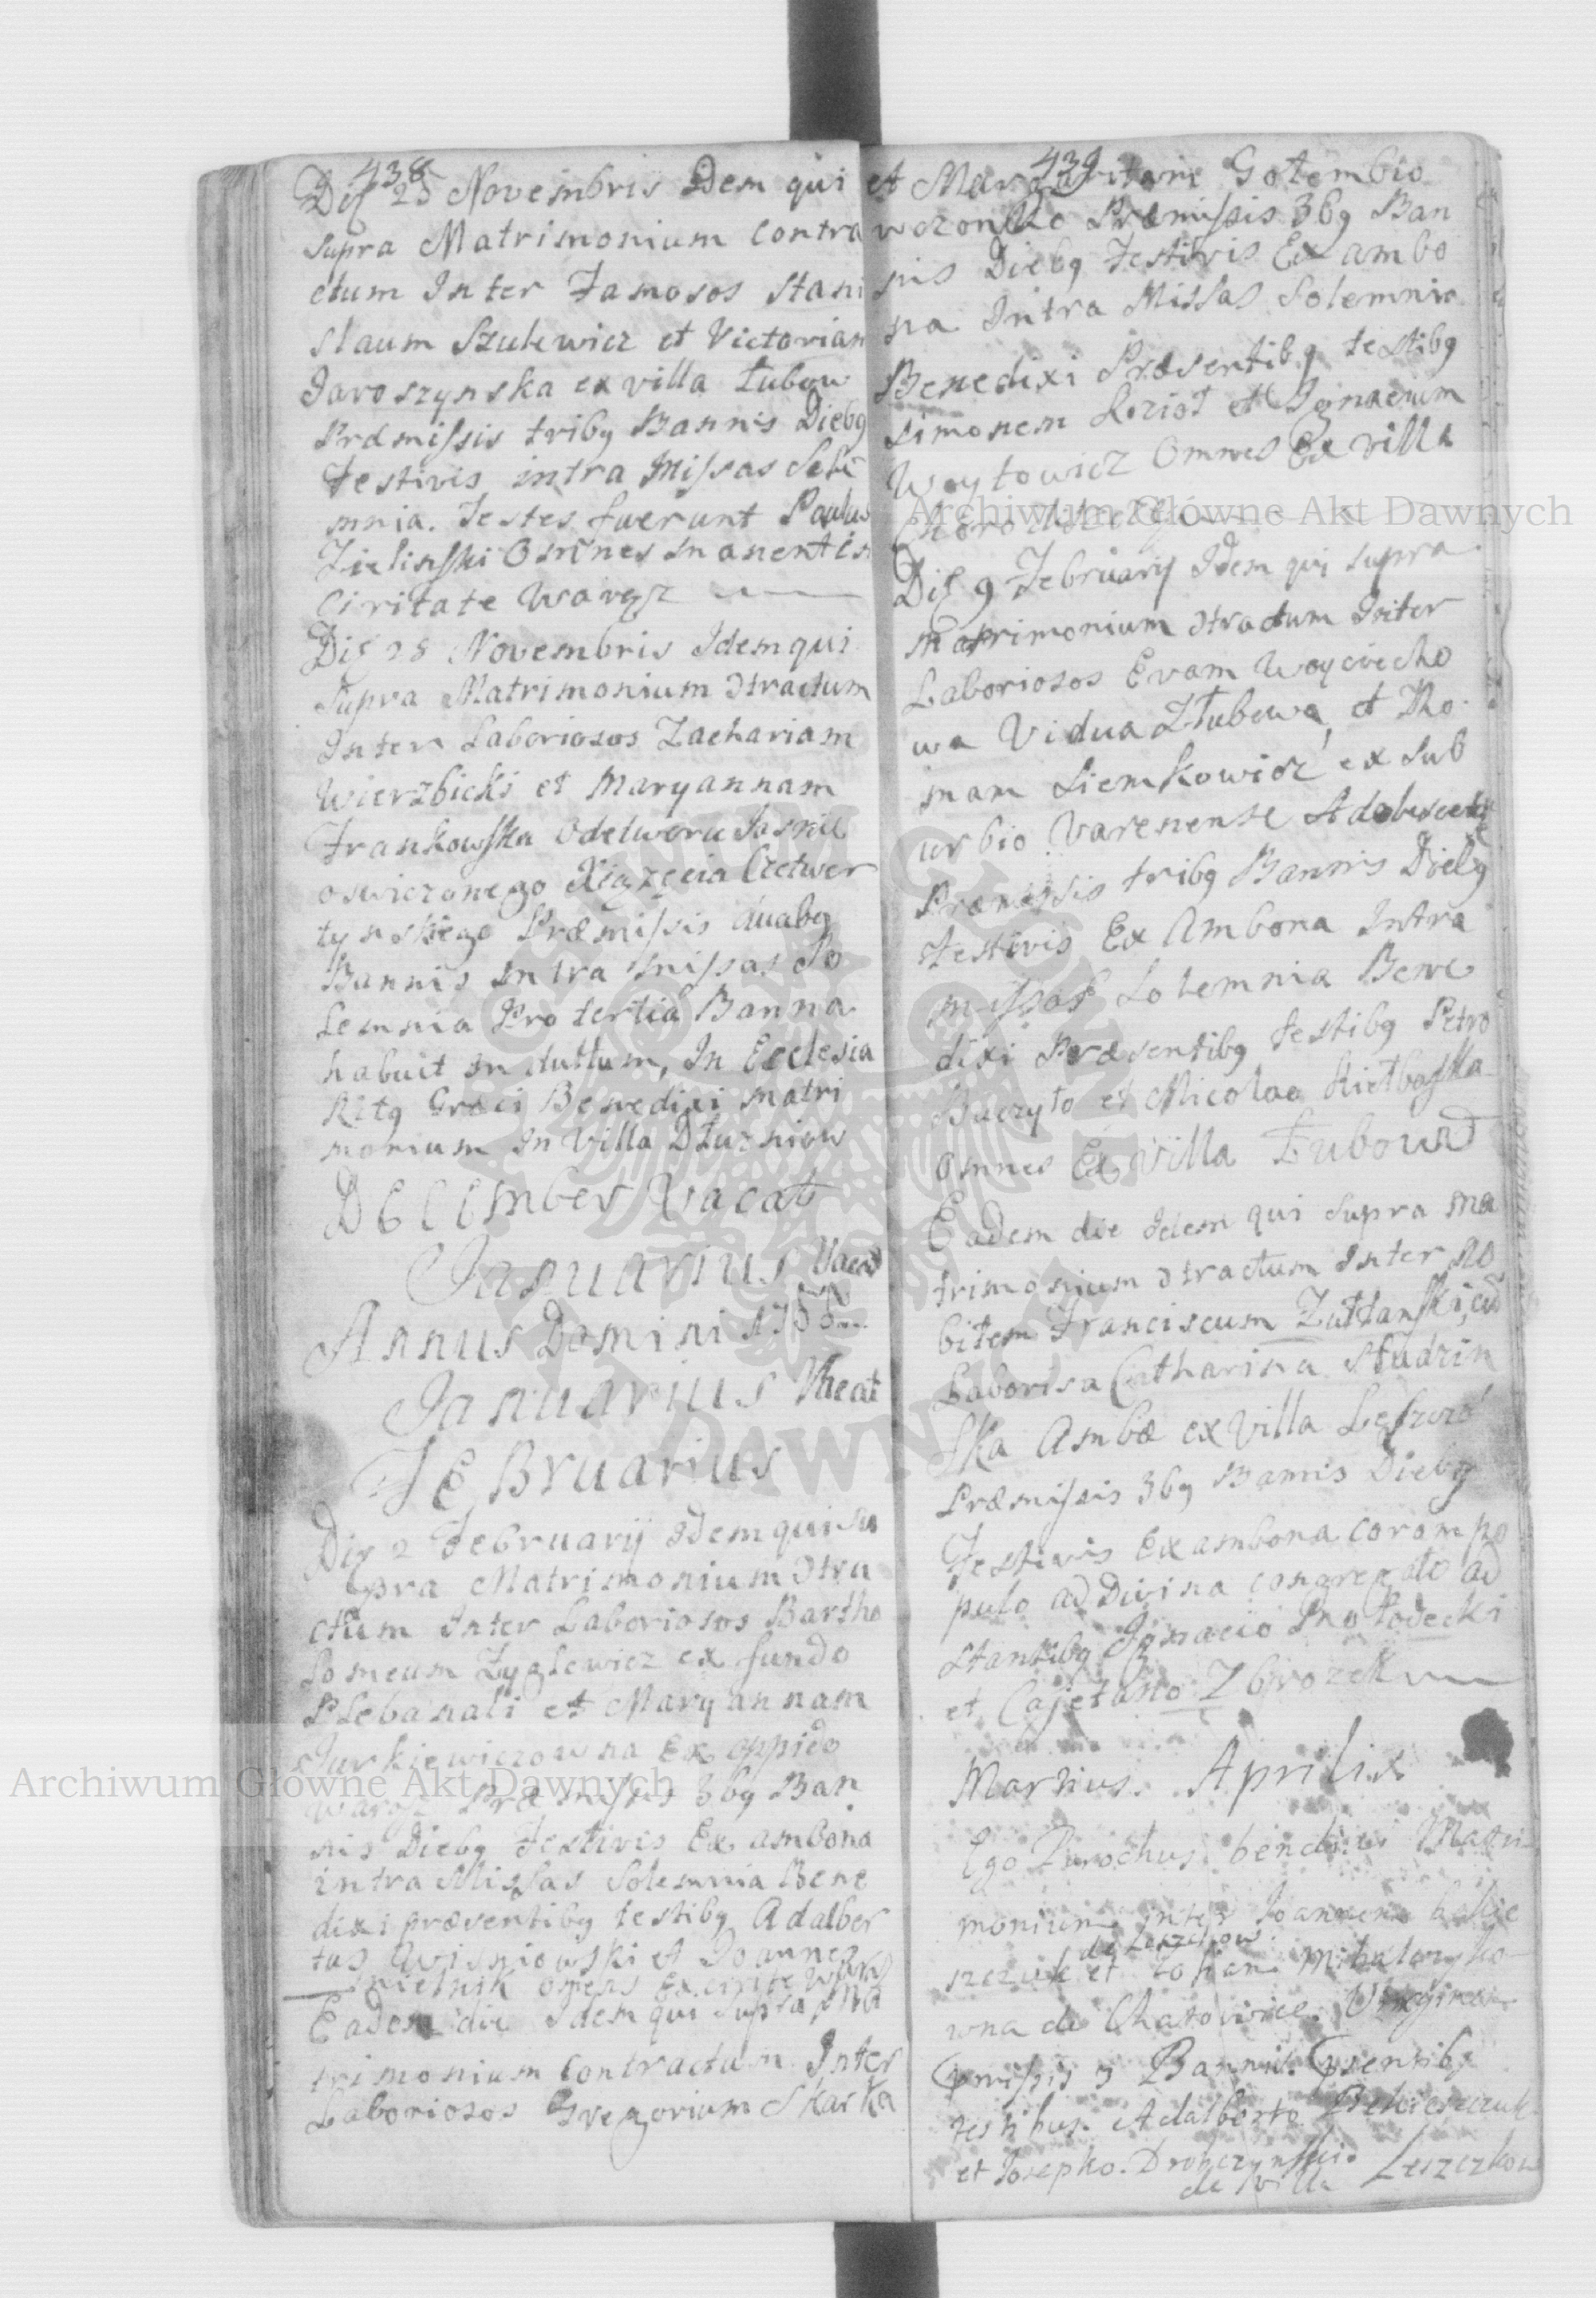 438
Die 25 Novembris Idem qui
supra Matrimonium contra
ctum Inter Famosos Stani
slaum Szulewicz et Victorian
Jaroszynska ex villa Łubow
Præmissis tribg Bannis Diebg
Festivis intra Missas Sole
mnia. Testes fuerunt Paulus
Zielinski Omnes manentes in
Civitate Waręż
Die 28 Novembris Idem qui
supra Matrimonium Ɔtractum
Inter Laboriosos Zachariam
Wierzbicki et Maryannam
Frankowska Odelworu Jasnie
oswieconego Xiązęcia Czetwer
tynskiego Præmissis duabg
Bannis Intra Missas So
lemnia Pro tertia Banna
habuit Indultum, In Ecclesia
Ritg Græci Benedixi matri
monium In Villa Dłużniow
December Vacat
Januarius Vacat
Annus Domini
Januarius Vacat
Februarius
Die 2 Februarij Idem qui su
pra Matrimonium Ɔtra
ctum Inter Laboriosos Bartho
lomeum Zyglewicz ex fundo
Plebanali et Maryannam
Jurkiewiczowna Ex oppido
Præmissis 3bg Ban
nis Diebg Festivis Ex ambona
intra Missas Solemnia Bene
dixi præsentibg testibg Adalber
tus Wisniowski et Joannes
Mielnik omnes ex civite
Eadem die Idem qui supra Ma
trimonium Contractum Inter
Laboriosos Gregorium Skarka
439
et Margaritam Gołembio
wczonka Præmissis 3bg Ban
nis Diebg Festivis Ex ambo
na Intra Missas Solemnia
Benedixi Præsentibg testibg
Simonem Kozioł et Ignacium
Woytowicz Omnes Ex villa
Die 9 Februarij Idem qui supra
Matrimonium Ɔtractum Inter
Laboriosos Evam Woyciecho
wa Vidua Złubowa et Tho
mam Siemkowicz ex Sub
urbio Varenense Adolescente
Præmissis tribg Bannis Diebg
Festivis Ex Ambona Intra
missas Solemnia Bene
dixi Præsentibg testibg Petro
Buczyło et Nicolao Kiełbaska
omnes Ex Villa Łubow
Eadem die Idem qui supra ma
trimonium Ɔtractum Inter No
bilem Franciscum Zułtanski, cū
Laboriosa Catharina Studzin
ska Ambæ ex Villa
Præmissis 3bg Bannis Diebg
Festivis Ex ambona coram po
pulo ad Divina congregato ad
stantibg Ignacio
et Cajetano Zbrozek
Martius. Aprilis
Ego Parochus benedixi Matri
monium inter Joannem
de Leszczkow
et
wna de
præmissis 3 Bannis. præsentibg
testibus. Adalberto
et Josepho. Drohczynski.
de Villa Leszczkow
Archiwum Główne Akt Dawnych
Archiwum Główne Akt Dawnych
ARCHIWUM GŁÓWNE AKT DAWNYCH